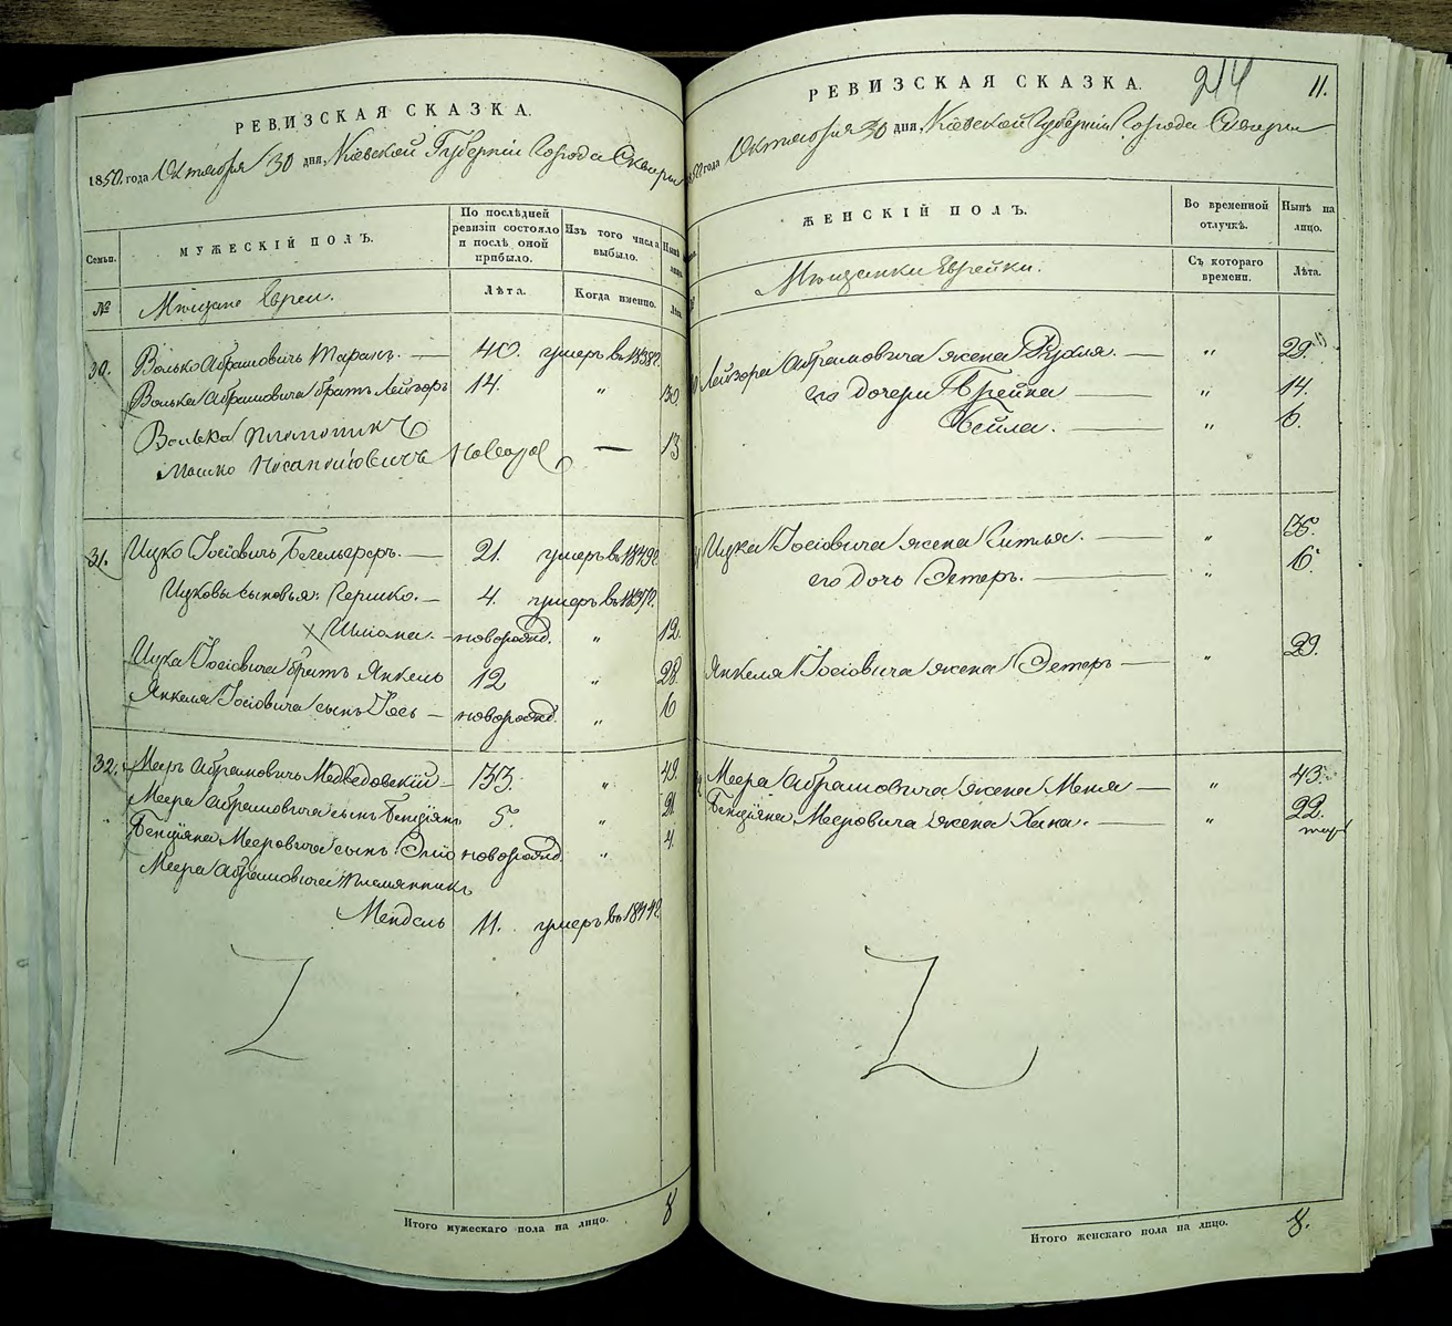 РЕВИЗСКАЯ СКАЗКА.
1850. года Октября 30 дня, Кіевской Губерніи Города Сквиры
Семьи.
МУЖЕСКІЙ ПОЛЪ.
По послѣдней ревизіи состояло и послѣ оной прибыло.
Изъ того числа выбыло.
Нынѣ на лицо.
№
Мѣщане Евреи.
Лѣта.
Когда именно.
Лѣта.
30. Волько Абрамовичъ Таранъ. — 40. умеръ въ 1838г.
Волька Абрамовича братъ Лейзоръ 14. „ 30.
Волька
Мошко 13
31. Ицко Іосіовичъ — 21. умеръ въ 1839г.
Ицковы сыновья: Гершко. — 4. умеръ въ 1837г.
Шліома. — новорожд. „ 12.
Ицка Іосіовича братъ Янкель 12 „ 28.
Янкеля Іосіовича сынъ Іось — новорожд. „ 6
32. Меръ Абрамовичъ Медведовскій — 33. „ 49.
Меера Абрамовича сынъ Бенціянъ 5. „ 21.
Бенціяна Мееровича сынъ Эліо новорожд. „ 4.
Меера Абрамовича племянникъ
Мендель 11. умеръ въ 1844г.
Итого мужескаго пола на лицо. 8
214
11.
РЕВИЗСКАЯ СКАЗКА.
1850 года Октября 30 дня, Кіевской Губерніи Города Сквиры
ЖЕНСКІЙ ПОЛЪ.
Во временной отлучкѣ.
Нынѣ на лицо.
Мѣщанки Еврейки.
Съ котораго времени.
Лѣта.
Лейзора Абрамовича жена Рухля. — „ 29.
его дочери Фрейна — „ 14.
Бейла. — „ 6.
Ицка Іосіовича жена Китля. — „ 35.
его дочь Эстеръ. — „ 16.
Янкеля Іосіовича жена Эстеръ — „ 29.
Меера Абрамовича жена Меня — „ 43.
Бенціяна Мееровича жена Хана. — „ 22.
Итого женскаго пола на лицо. 8.